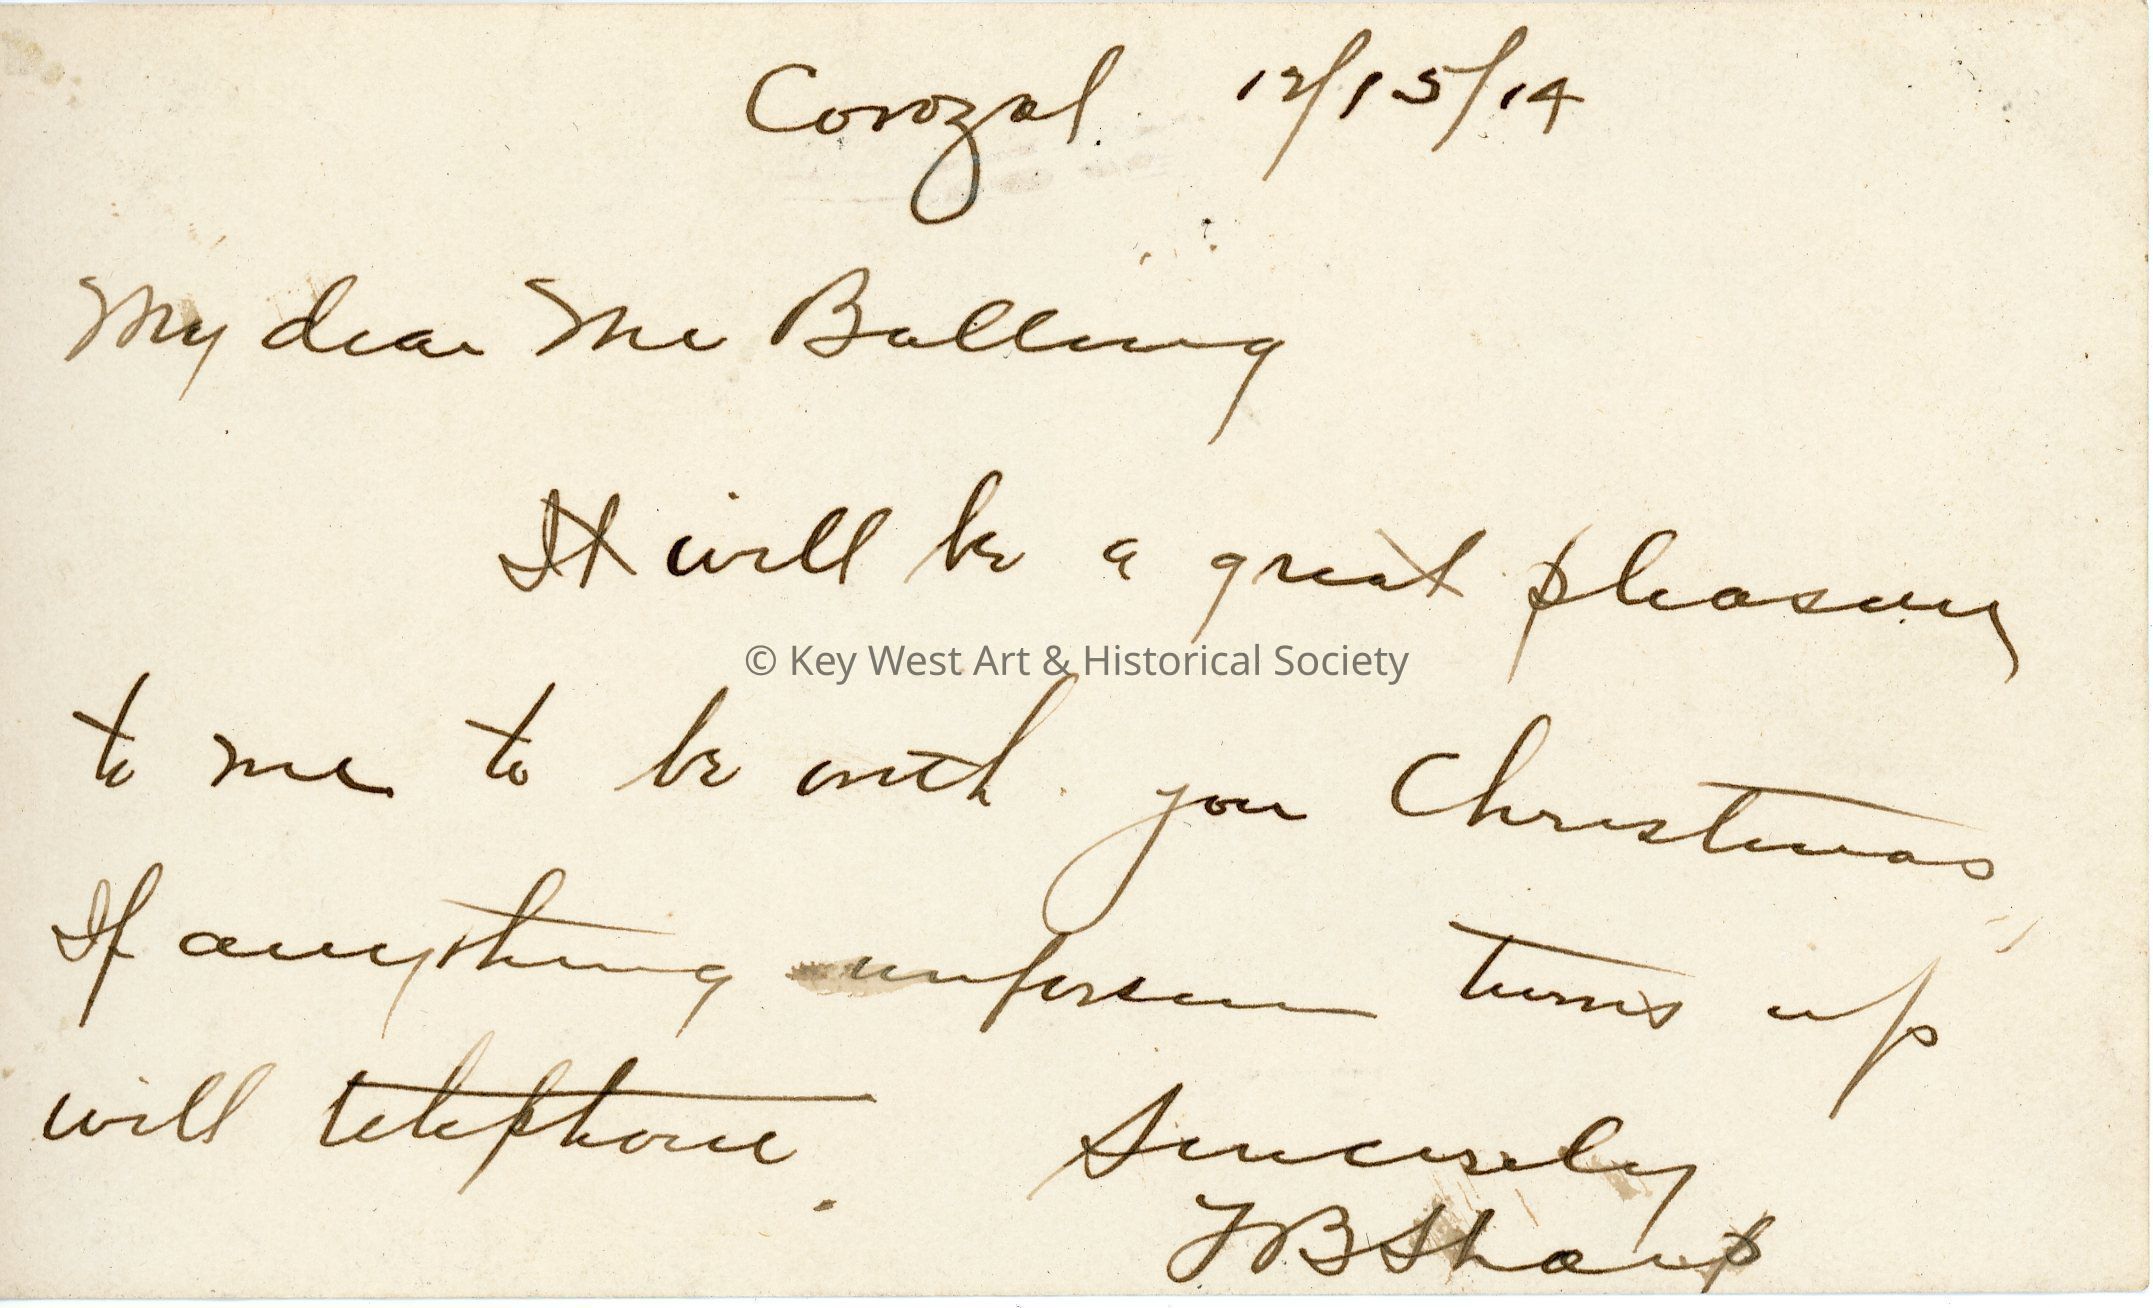 Corozal. 12/15/14
My dear Mr Balling
It will be a great pleasure
© Key West Art & Historical Society
to me to be with you Christmas,
If anything unforseen turns up
will telephone.
Sincerely
Sharp